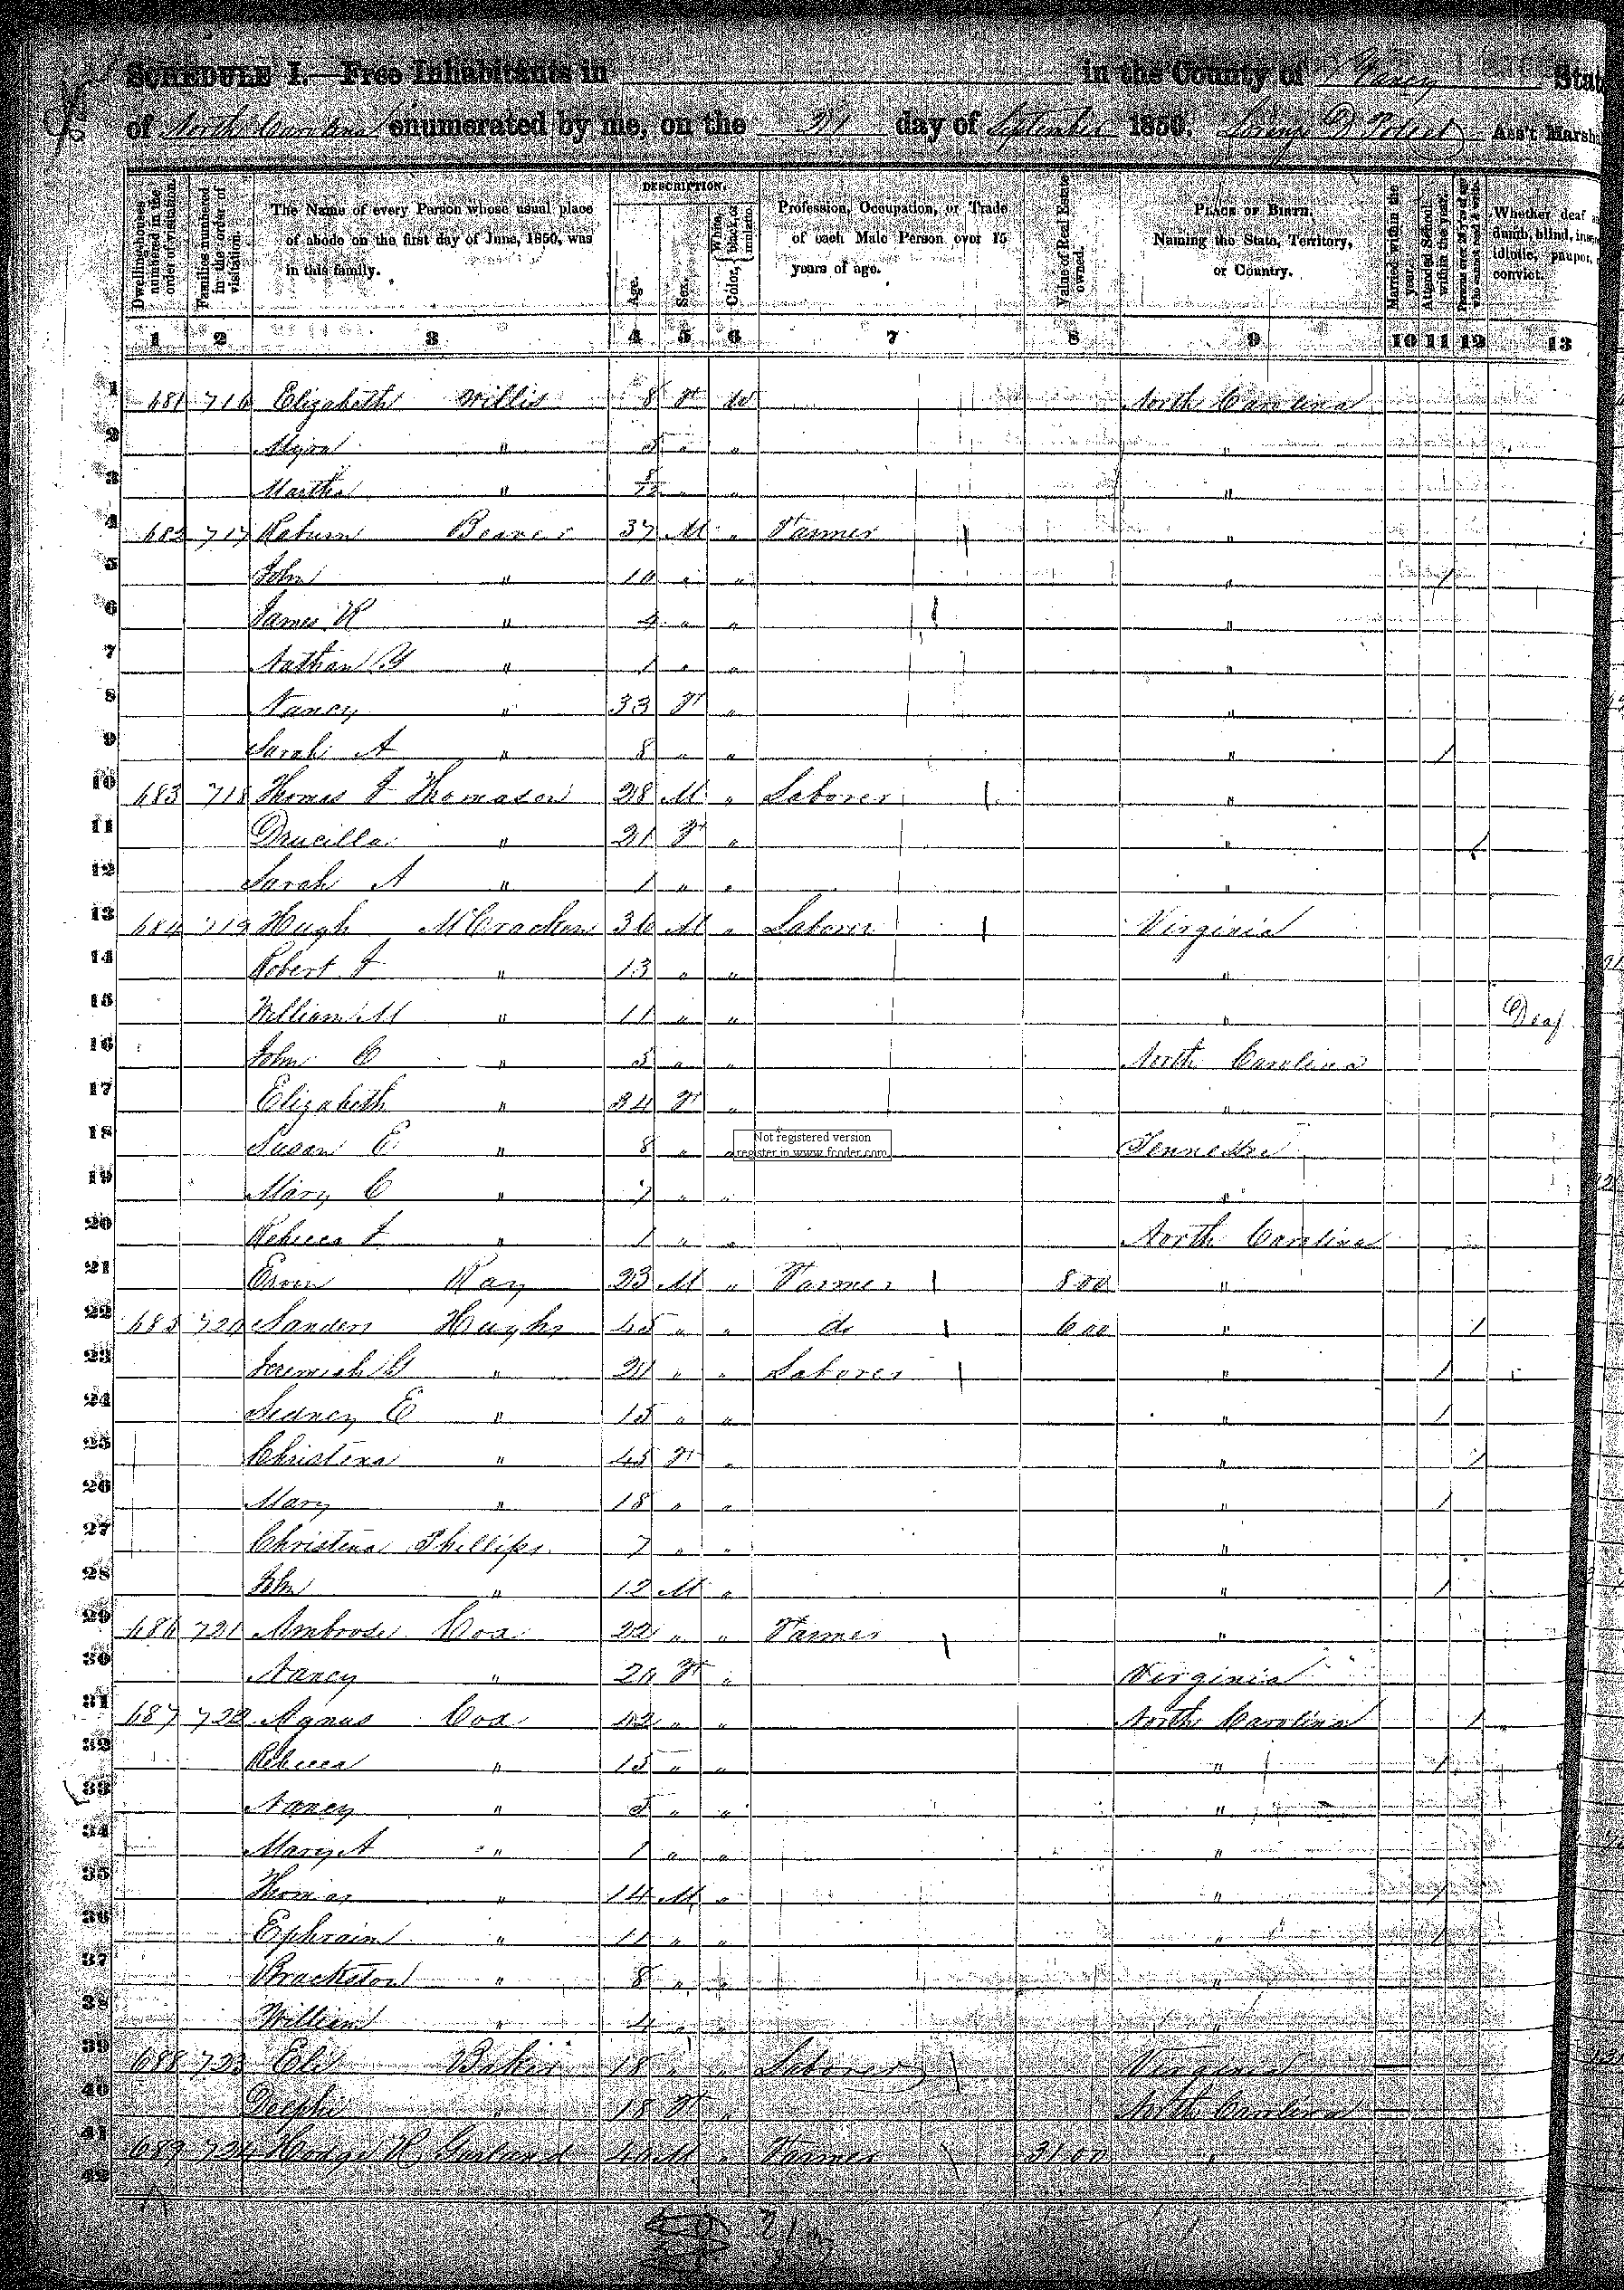 SCHEDULE I.—Free Inhabitants in in the County of Yancy State
of North Carolina enumerated by me, on the 21 day of September 1850. Lorenzo D Ass't Marsh
Dwelling-houses numbered in the order of visitation.
Families numbered in the order of visitation.
The Name of every Person whose usual place of abode on the first day of June, 1850, was in this family.
DESCRIPTION.
Age.
Sex.
Color, { White, black, or mulatto.
Profession, Occupation, or Trade of each Male Person over 15 years of age.
Value of Real Estate owned.
PLACE OF BIRTH. Naming the State, Territory, or Country.
Married within the year.
Attended School within the year.
Persons over 20 y'rs of age who cannot read & write.
Whether deaf dumb, blind, idiotic, pauper, convict.
1 2 3 4 5 6 7 8 9 10 11 12 13
1 681 716 Elizabeth Willis 8 F W North Carolina
2 Myra " 5 " " "
3 Martha " 8/12 " " "
4 682 717 Raburn Beaver 37 M " Farmer "
5 John " 10 " " " /
6 James R " 4 " " "
7 Nathan Y " 1 " " "
8 Nancy " 33 F " "
9 Sarah A " 8 " " " /
10 683 718 Thomas J Thomason 28 M " Laborer "
11 Drucilla " 21 F " " /
12 Sarah A " 1 " " "
13 684 719 Hugh McCracken 36 M " Laborer Virginia
14 Robert J " 13 " " "
15 William M " 11 " " " Deaf
16 John C " 5 " " North Carolina
17 Elizabeth " 34 F " "
18 Susan E " 8 " " Tennessee
19 Mary C " 7 " " "
20 Rebecca J " 1 " " North Carolina
21 Ervin Ray 23 M " Farmer 800 "
22 685 720 Sanders Hughs 45 " " do 600 " /
23 Jeremiah G " 21 " " Laborer " /
24 Sidney E " 15 " " " /
25 Christena " 45 F " " /
26 Mary " 18 " " " /
27 Christena Phillips 7 " " "
28 John " 12 M " " /
29 686 721 Ambrose Cox 22 " " Farmer "
30 Nancy " 20 F " Virginia
31 687 722 Agnus Cox 42 " " North Carolina /
32 Rebecca " 15 " " " /
33 Nancy " 5 " " "
34 Mary A " 1 " " "
35 Thomas " 14 M " " /
36 Ephraim " 11 " " " /
37 Brackston " 8 " " "
38 William " 4 " " "
39 688 723 Eli Baker 18 " " Laborer Virginia
40 " 18 F " North Carolina
41 689 724 Hodge R Garland 40 M " Farmer 3100 "
42
Not registered version
register in www.fcoder.com